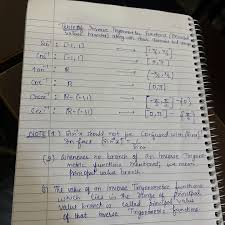 Inverse Trigonometric Functions (Principal
value branches) along with their domains and range
sin⁻¹ : [-1, 1] → [-π/2, π/2]
cos⁻¹ : [-1, 1] → [0, π]
tan⁻¹ : R → (-π/2, π/2)
cot⁻¹ : R → (0, π)
cosec⁻¹ : R-(-1,1) → [-π/2, π/2] - {0}
sec⁻¹ : R-(-1,1) → [0, π] -
NOTE (1) sin⁻¹x should not be confused with (sin x)⁻¹
In fact (sin x)⁻¹ = 1/sin x
(2) Whenever no branch of an Inverse Trigono
metric functions mentioned, we mean
principal value branch.
(3) The value of an Inverse Trigonometric functions
which lies in the range of principal
value branch is called principal value
of that Inverse Trigonometric functions.